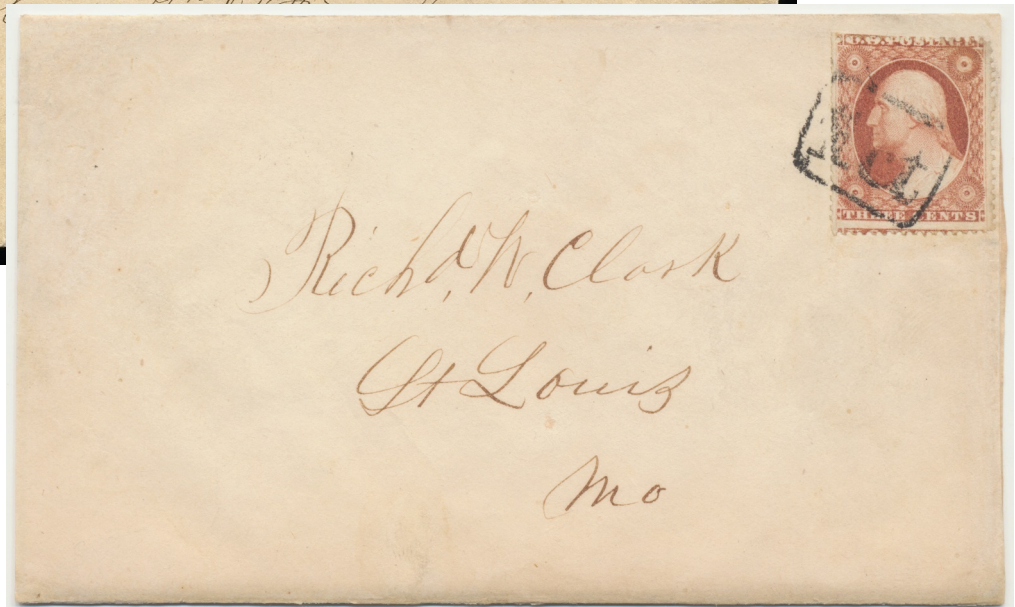 U.S. POSTAGE
THREE CENTS
Richd, W, Clark
St Louis
Mo